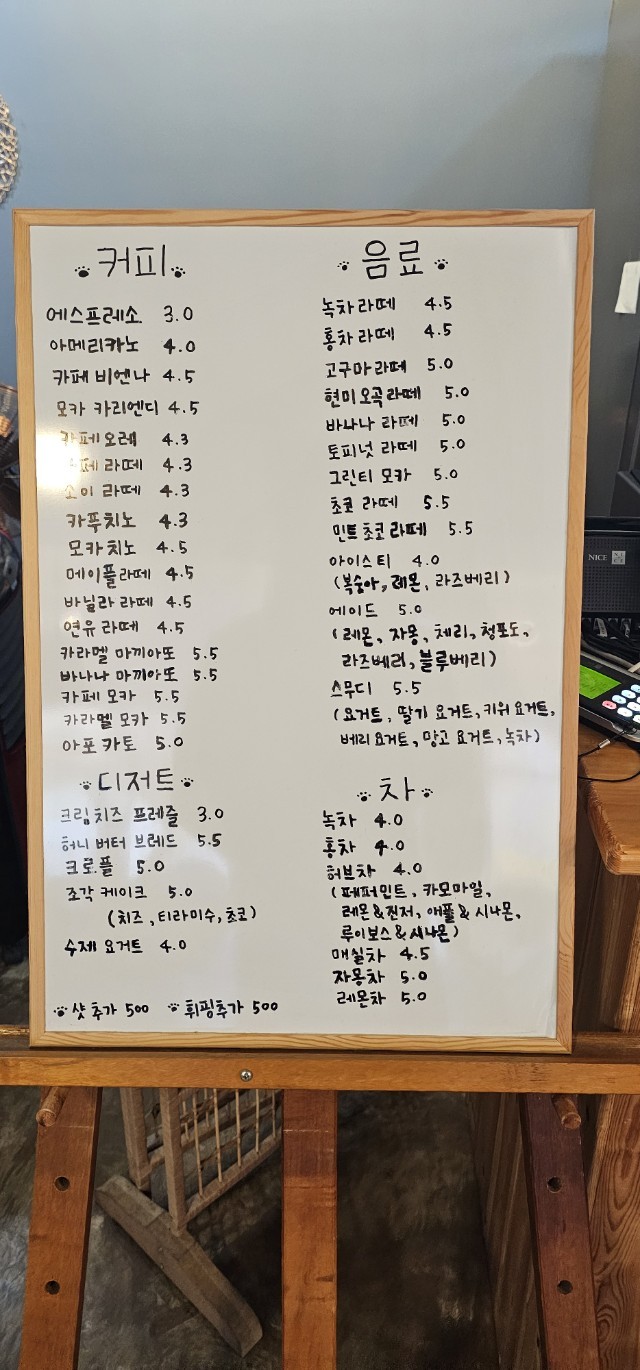 커피
에스프레소 3.0
아메리카노 4.0
카페 비엔나 4.5
모카 카리엔디 4.5
카페오레 4.3
카페 라떼 4.3
소이 라떼 4.3
카푸치노 4.3
모카치노 4.5
메이플라떼 4.5
바닐라 라떼 4.5
연유 라떼 4.5
카라멜 마끼아또 5.5
바나나 마끼아또 5.5
카페 모카 5.5
카라멜 모카 5.5
아포카토 5.0
디저트
크림치즈 프레즐 3.0
허니 버터 브레드 5.5
크로플 5.0
조각 케이크 5.0
(치즈, 티라미수, 초코)
수제 요거트 4.0
샷 추가 500 휘핑추가 500
음료
녹차라떼 4.5
홍차라떼 4.5
고구마라떼 5.0
현미오곡라떼 5.0
바나나 라떼 5.0
토피넛 라떼 5.0
그린티 모카 5.0
초코 라떼 5.5
민트초코라떼 5.5
아이스티 4.0
(복숭아, 레몬, 라즈베리)
에이드 5.0
(레몬, 자몽, 체리, 청포도,
라즈베리, 블루베리)
스무디 5.5
(요거트, 딸기 요거트, 키위 요거트,
베리 요거트, 망고 요거트, 녹차)
차
녹차 4.0
홍차 4.0
허브차 4.0
(페퍼민트, 카모마일,
레몬&진저, 애플&시나몬,
루이보스&시나몬)
매실차 4.5
자몽차 5.0
레몬차 5.0
NICE